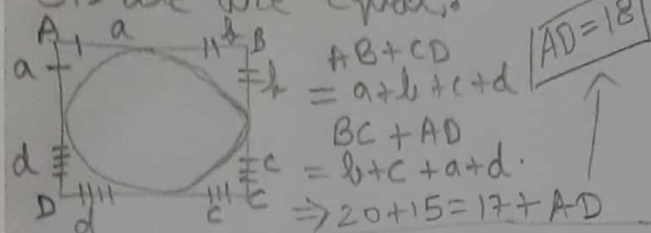 A a b B
a b
d c
D d c C
AB + CD
= a+b+c+d
BC + AD
= b+c+a+d.
⇒ 20+15=17+AD
AD=18